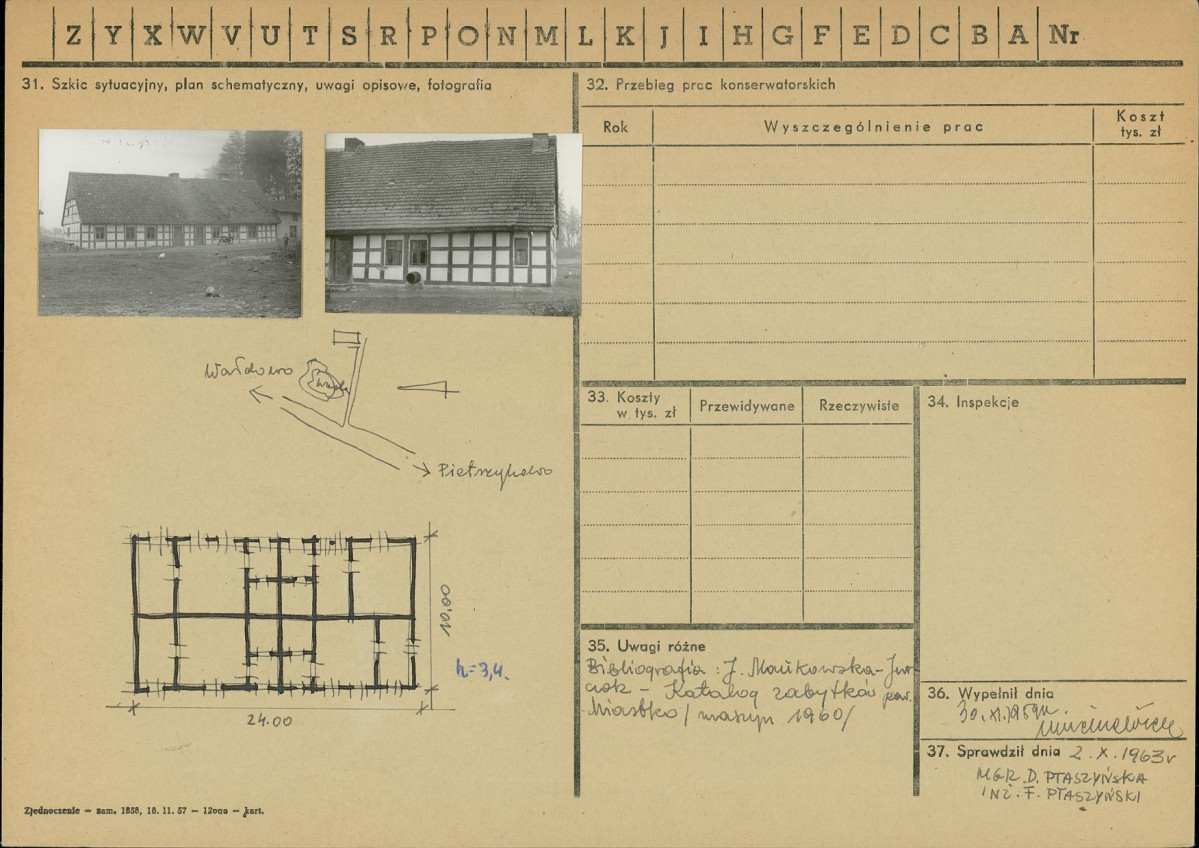 Z Y X W V U T S R P O N M L K J I H G F E D C B A Nr
31. Szkic sytuacyjny, plan schematyczny, uwagi opisowe, fotografia
Wałdowo
Pietrzykowo
10.00
h=3,4.
24.00
Zjednoczenie — zam. 1858, 18. 11. 57 — 12000 — kart.
32. Przebieg prac konserwatorskich
Rok
Wyszczególnienie prac
Koszt
tys. zł
33. Koszty
w tys. zł
Przewidywane
Rzeczywiste
34. Inspekcje
35. Uwagi różne
Bibliografia : J.
– Katalog zabytków pow.
Miastko / maszyn 1960/
36. Wypełnił dnia
30.XI.1959r.
37. Sprawdził dnia 2.X.1963r
MGR. D. PTASZYŃSKA
INŻ. F. PTASZYŃSKI